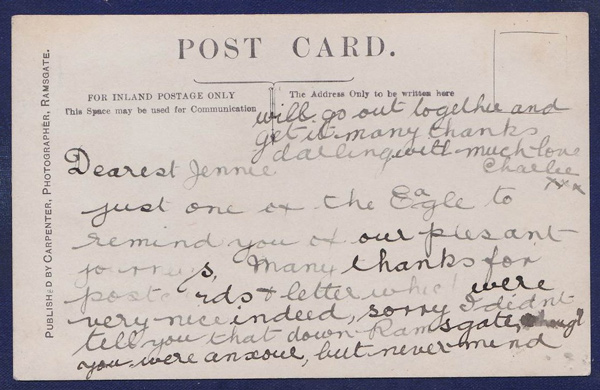 POST CARD.
FOR INLAND POSTAGE ONLY
This Space may be used for Communication
The Address Only to be written here
PUBLISHED BY CARPENTER, PHOTOGRAPHER, RAMSGATE.
Dearest Jennie
just one of the Eagle to
remind you of our plesant
journeys, Many thanks for
postcards & letter which were
very nice indeed, sorry I didnt
tell you that down Ramsgate, though
you were anxoue, but never mind
will go out together and
get it many thanks
darling with much love
Charlie
xxx